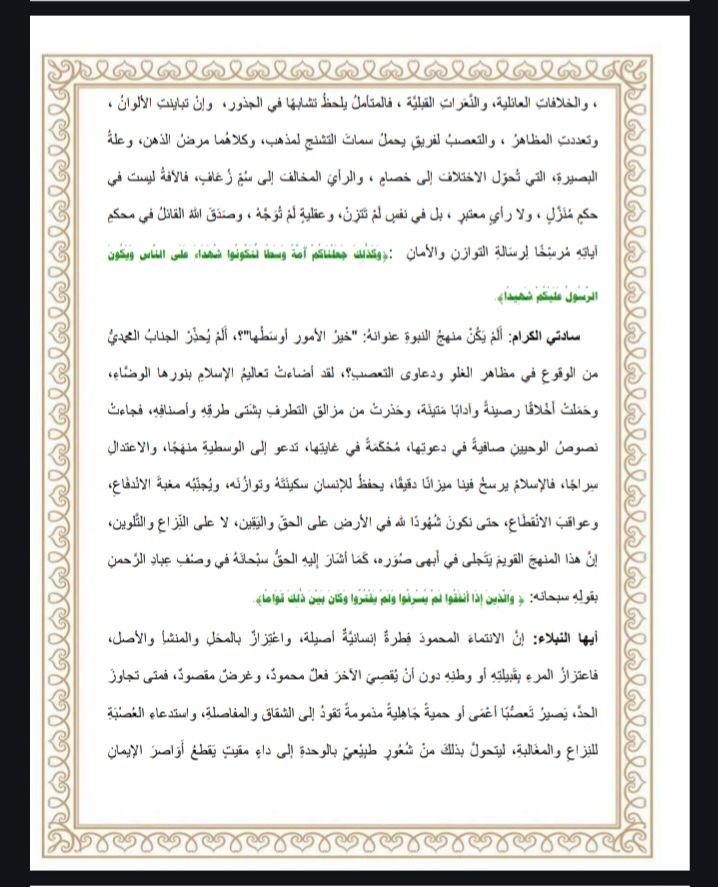 ، والخلافاتِ العائليةِ، والنَّعَراتِ القبليَّة ، فالمتأملُ يلحظُ تشابهًا في الجذور، وإنْ تباينتِ الألوانُ ،
وتعددتِ المظاهرُ ، والتعصبُ لفريقٍ يحملُ سماتَ التشنجِ لمذهب، وكلاهُما مرضُ الذهن، وعلةُ
البصيرةِ، التي تُحوّل الاختلافَ إلى خصامٍ ، والرأيَ المخالفَ إلى سُمٍّ زُعَافٍ، فالآفةُ ليست في
حكمٍ مُنَزَّلٍ ، ولا رأيٍ معتبرٍ ، بل في نفسٍ لَمْ تَتزِنْ، وعقليةٍ لَمْ تُوَجَّهْ ، وصدَقَ اللهُ القائلُ في محكمِ
آياتِهِ مُرسِّخًا لِرسَالةِ التوازنِ والأمانِ :﴿وَكَذَٰلِكَ جَعَلْنَاكُمْ أُمَّةً وَسَطًا لِّتَكُونُوا شُهَدَاءَ عَلَى النَّاسِ وَيَكُونَ
الرَّسُولُ عَلَيْكُمْ شَهِيدًا﴾.
سادتي الكرام: أَلَمْ يَكُنْ منهجُ النبوةِ عنوانهُ: "خيرُ الأمورِ أوسَطُها"؟، أَلَمْ يُحذِّرِ الجنابُ المحمديُّ
من الوقوعِ في مظاهرِ الغلوِ ودعاوى التعصب؟، لقد أضاءتْ تعاليمُ الإسلامِ بنورها الوضَّاءِ،
وحَمَلتْ أخْلاقًا رصينةً وآدابًا مَتينَة، وحَذرتْ من مزالقِ التطرفِ بِشَتى طرقِهِ وأصنافِهِ، فجاءتْ
نصوصُ الوحيينِ صافيةً في دعوتِها، مُحْكَمَةً في غايتِها، تدعو إلى الوسطيةِ منهجًا، والاعتدالِ
سِراجًا، فالإسلامُ يرسخُ فينا ميزانًا دقيقًا، يحفظُ للإنسانِ سكينتَهُ وتوازنَه، ويُجنِّبُه مغبةَ الاندفاعِ،
وعواقبَ الانْقطاعِ، حتى نكونَ شُهُودًا لله في الأرضِ على الحقِّ واليَقِينِ، لا على النِّزاعِ والتَّلوينِ،
إنَّ هذا المنهجَ القويمَ يَتَجلى في أبهى صُوَرِه، كَمَا أشَارَ إليهِ الحقُّ سبْحانَهُ في وصْفِ عِبادِ الرَّحمنِ
بقولِهِ سبحانه: ﴿ وَالَّذِينَ إِذَا أَنفَقُوا لَمْ يُسْرِفُوا وَلَمْ يَقْتُرُوا وَكَانَ بَيْنَ ذَٰلِكَ قَوَامًا﴾.
أيها النبلاء: إنَّ الانتماءَ المحمودَ فِطرةٌ إنسانيَّةٌ أصيلة، واعْتِزازٌ بالمحَلِ والمنشأِ والأصل،
فاعتزازُ المرءِ بِقَبيلتِهِ أو وطنِهِ دون أنْ يُقصِيَ الآخرَ فعلٌ محمودٌ، وغرضٌ مقصودٌ، فمتى تجاوزَ
الحدَّ، يَصيرُ تَعصُّبًا أعْمَى أو حميةً جَاهِليةً مذمومةً تقودُ إلى الشقاقِ والمفاصلةِ، واستدعاءِ العُصْبَةِ
للنِزاعِ والمغَالبةِ، ليتحولَ بذلكَ منْ شُعُورٍ طبِيْعيٍّ بالوحدةِ إلى داءٍ مقيتٍ يَقطعُ أَوَاصرَ الإيمانِ